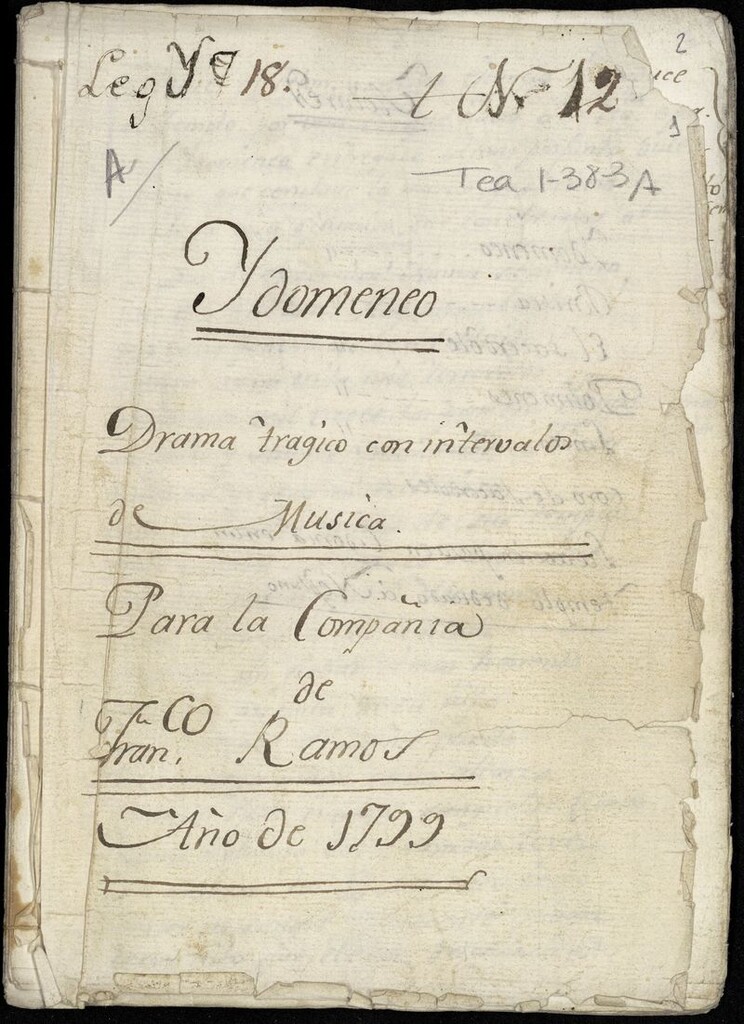 Leg Yº 18. t Nº 12
2
1
A/
Tea 1-383A
Ydomeneo
Drama tragico con intervalos
de Musica.
Para la Compañia
de
Fran.co Ramos
Año de 1799